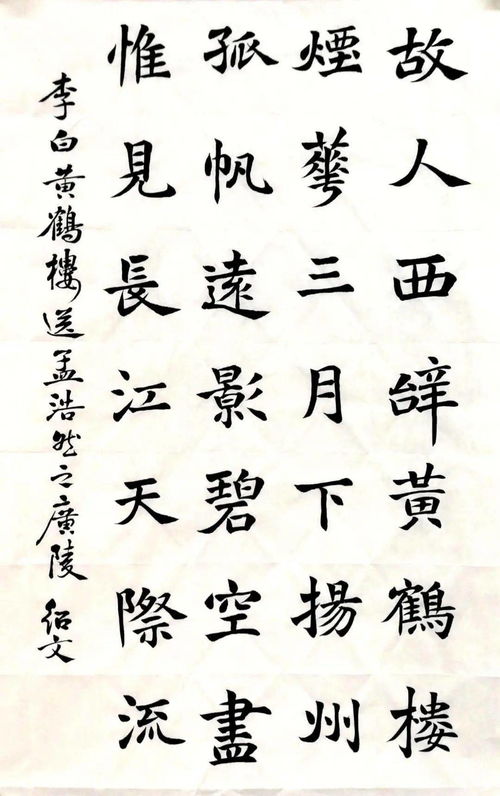 故人西辝黃鶴樓
煙華三月下揚州
孤帆遠影碧空盡
惟見長江天際流
李白黃鶴樓送孟浩然之廣陵 紹文